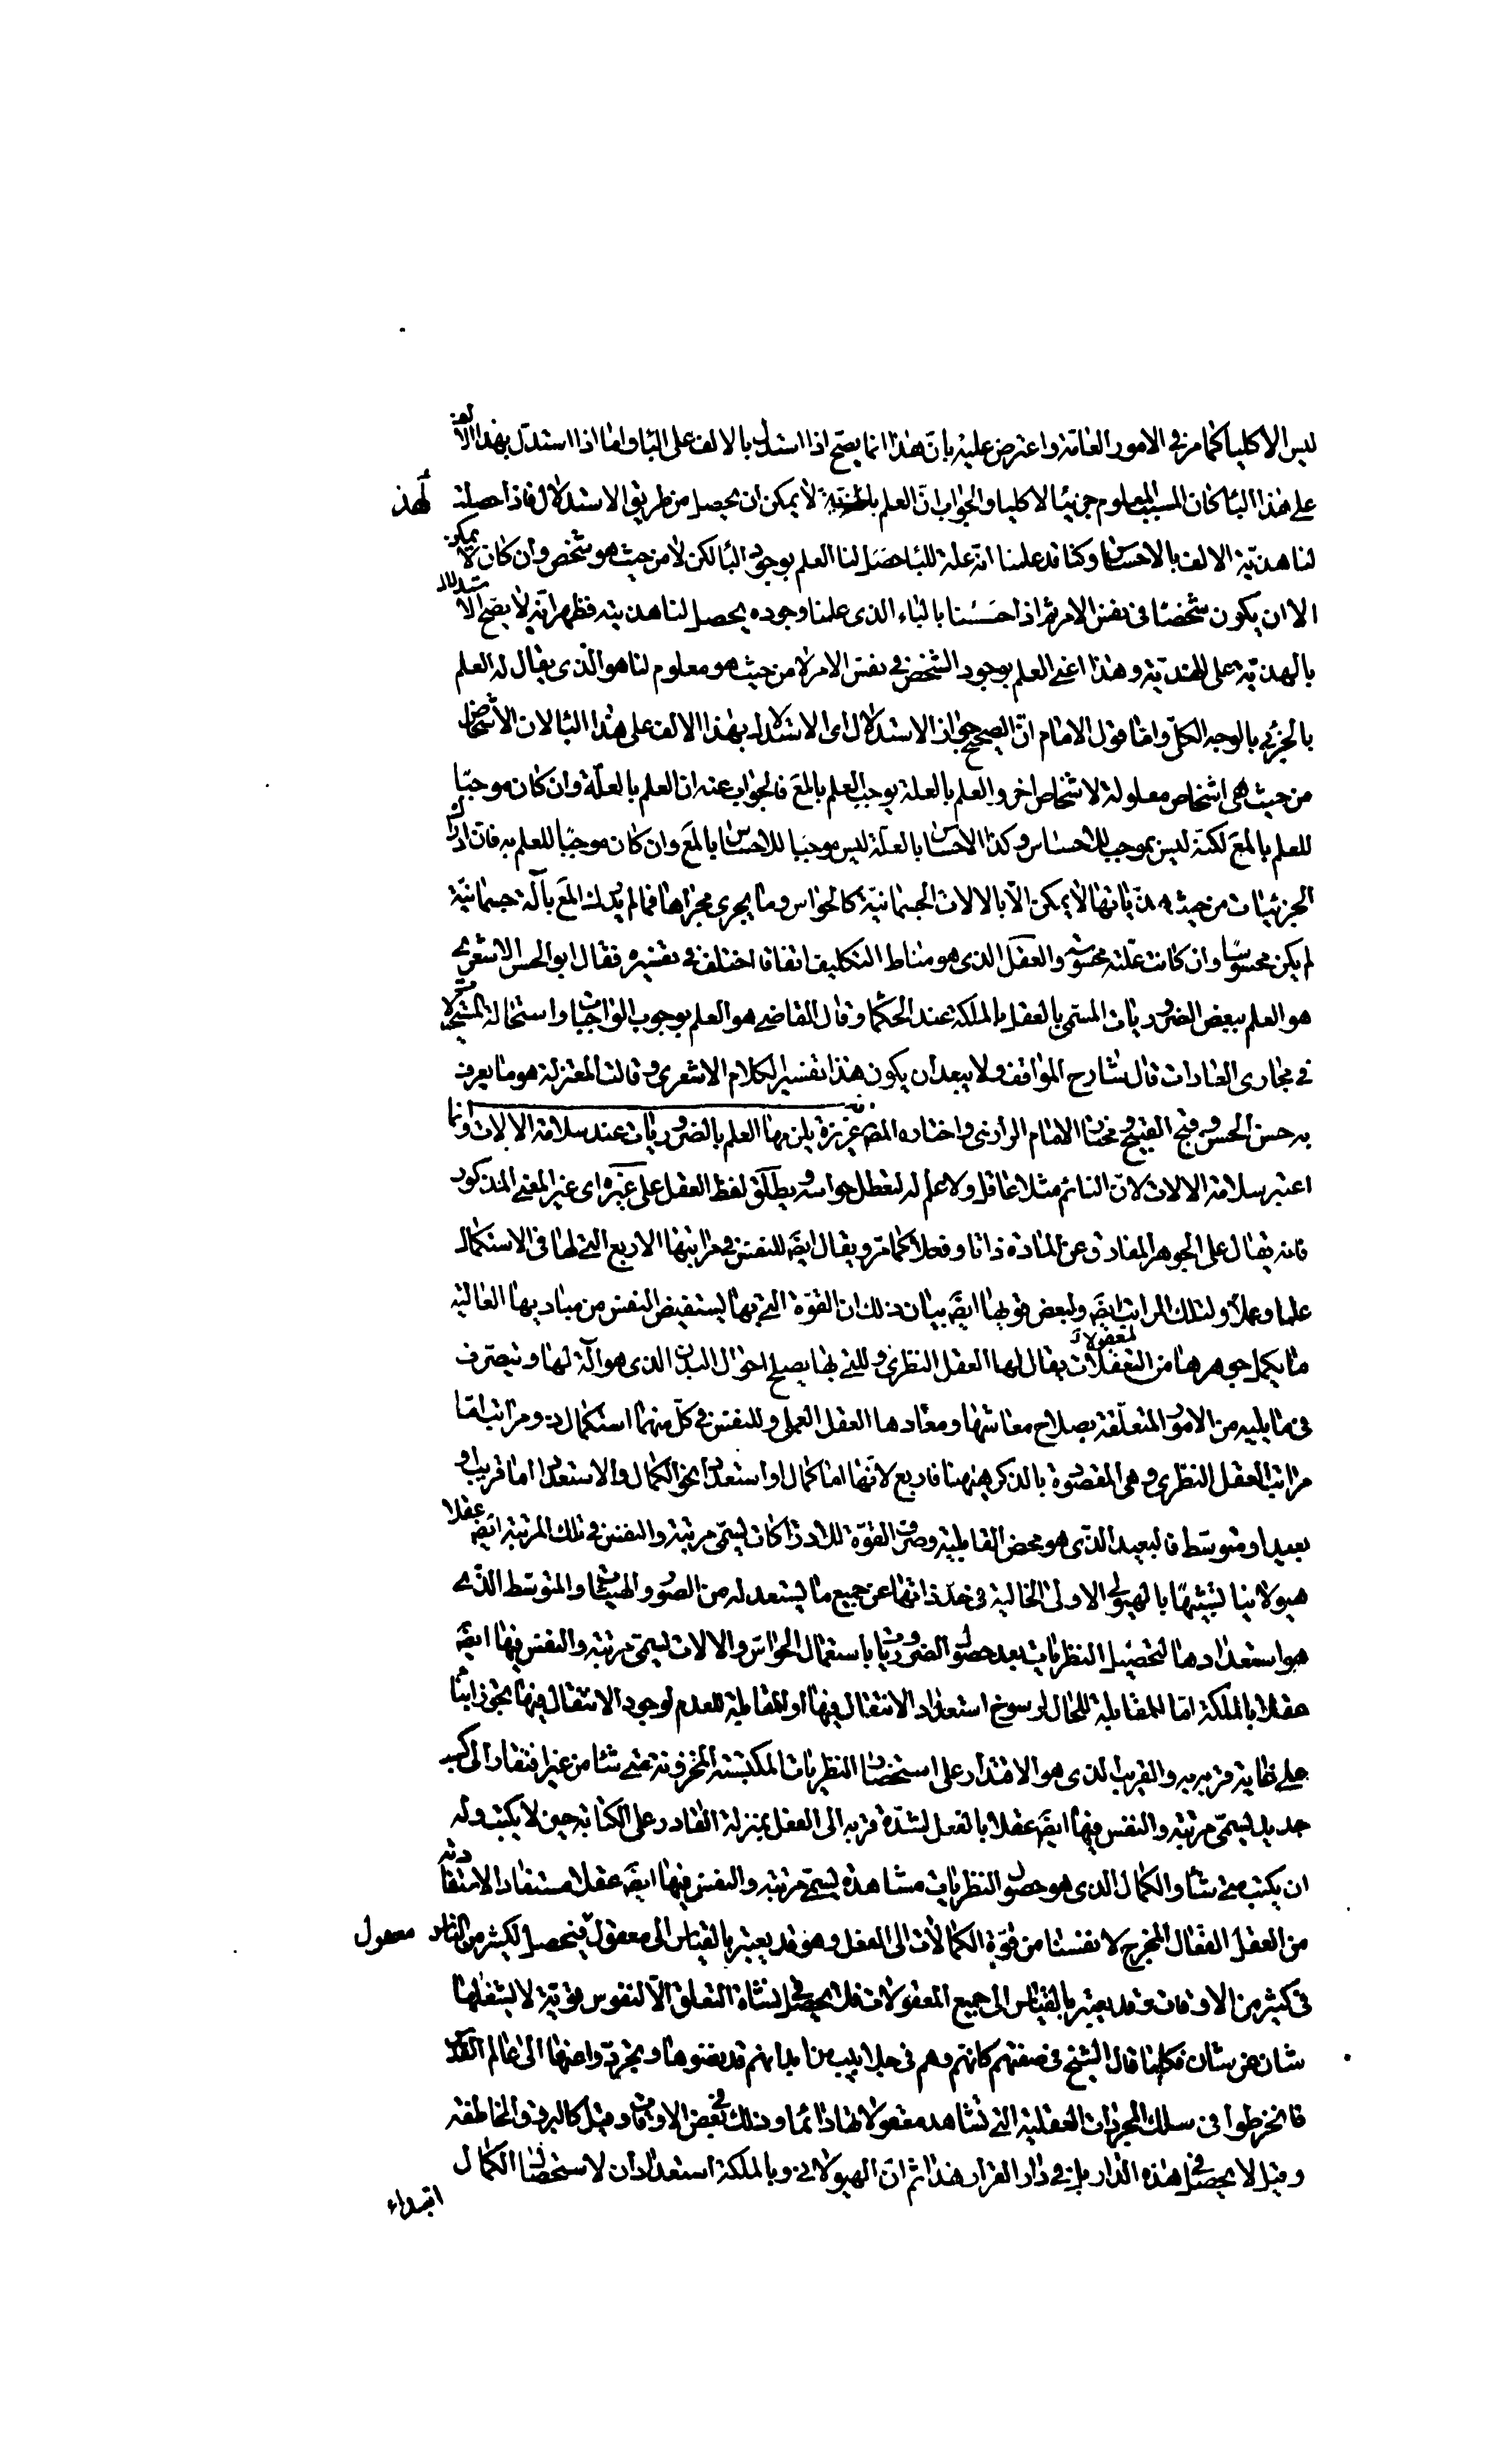 ليس الا كليا كما مر في الامور العامة واعترض عليه بان هذا انما يصح اذا استدل بالالف على الباء واما اذا استدل بهذا الالف
على هذا الباء كان المسبب المعلوم جزئيا لا كليا والجواب ان العلم بالهذية لا يمكن ان يحصل من طريق الاستدلال فاذا حصلت
لنا هذية الالف بالاحساس وكنا قد علمنا انه علة للباء حصل لنا العلم بوجود الباء لكن لا من حيث هو شخص وان كان لا يمكن
الا ان يكون شخصا في نفس الامر ثم اذا احسسنا بالباء الذي علمنا وجوده يحصل لنا هذيته فظهر انه لا يصح الاستدلال
بالهذية على الهذية وهذا اعني العلم بوجود الشخص في نفس الامر لا من حيث هو معلوم لنا هو الذي يقال له العلم
بالجزئي بالوجه الكلي واما قول الامام ان الصحيح جواز الاستدلال اى الاستدلال بهذا الالف على هذا الباء لان الاشخاص
من حيث هى اشخاص معلولة لاشخاص اخر والعلم بالعلة يوجب العلم بالمع فالجواب عنه ان العلم بالعلة وان كان موجبا
للعلم بالمع لكنه ليس بموجب للاحساس وكذا الاحساس بالعلة ليس موجبا للاحساس بالمع وان كان موجبا للعلم به فان ادراك
الجزئيات من حيث هذياتها لا يمكن الا بالالات الجسمانية كالحواس وما يجرى مجراها فما لم يدرك المع بآلة جسمانية
لم يكن محسوسا وان كانت علته محسوسة والعقل الذى هو مناط التكليف اتفاقا اختلف في تفسيره فقال ابو الحسن الاشعرى
هو العلم ببعض الضروريات المسمى بالعقل بالملكة عند الحكما وقال القاضى هو العلم بوجوب الواجبات واستحالة المستحيلات
في مجارى العادات قال شارح المواقف ولا يبعد ان يكون هذا تفسيرا لكلام الاشعرى وقالت المعتزلة هو ما يعرف
به حسن الحسن وقبح القبيح ومختار الامام الرازى واختاره المص غريزة يلزمها العلم بالضروريات عند سلامة الالات وانما
اعتبر سلامة الالات لان النائم مثلا عاقل ولا علم له لتعطل حواسه ويطلق لفظ العقل على غيره اى غير المعنى المذكور
فانه يقال على الجوهر المفارق عن المادة ذاتا وفعلا كما مر ويقال ايضَ للنفس في مراتبها الاربع التى لها في الاستكمال
علما وعملا ولتلك المراتب ايضَ ولبعض قواها ايضَ بيان ذلك ان القوة التى بها يستفيض النفس من مباديها العالية
ما يكمل جوهرها من التعقلات المعقولات يقال لها العقل النظرى وللتى بها يصلح احوال البدن الذى هو آلة لها ويتصرف
في ما يليه من الامور المتعلقة بصلاح معاشها ومعادها العقل العملى وللنفس في كل منهما استكمال ومراتب اما
مراتب العقل النظرى وهى المقصودة بالذكر ههنا فاربع لانها اما كمال او استعداد نحو الكمال والاستعداد اما قريب او
بعيد او متوسط فالبعيد الذى هو محض القابلية وصرف القوة للادراكات يسمى مرتبة والنفس في تلك المرتبة ايضَ عقلا
هيولانيا تشبيها بالهيولى الاولى الخالية في حد ذاتها عن جميع ما يستعد له من الصور والهيئات والمتوسط الذى
هو استعدادها لتحصيل النظريات بعد حصول الضروريات باستعمال الحواس والالات يسمى مرتبة والنفس فيها ايضَ
عقلا بالملكة اما للمقابلة للحال لرسوخ استعداد الانتقال فيها او للمقابلة للعدم لوجود الانتقال فيها تجوزا بناء
على غاية قربه به والقريب الذى هو الاقتدار على استحضار النظريات المكتسبة المخزونة متى شاء من غير افتقار الى كسب
جديد يسمى مرتبة والنفس فيها ايضَ عقلا بالفعل لشدة قربه الى الفعل بمنزلة القادر على الكتابة حين لا يكتب وله
ان يكتب متى شاء والكمال الذى هو حصول النظريات مشاهدة يسمى مرتبة والنفس فيها ايضَ عقلا مستفادا لاستفادته
من العقل الفعال المخرج لانفسنا من قوة الكمالات الى الفعل وهو قد يعتبر بالقياس الى معقول فيحصل لكثير من الناس
في كثير من الاوقات وقد يعتبر بالقياس الى جميع المعقولات فلا يحصل في نشأة التعلق الا لنفوس قوية لا يشغلها
شان عن شان فكما قال الشيخ في صفتهم كانهم وهم في جلابيب من ابدانهم قد نضوها وتجردوا عنها الى عالم القدس
فانخرطوا في سلك المجردات العقلية التى تشاهد معقولاتها دائما وذلك في بعض الاوقات وقيل كالبروق الخاطفة
وقيل لا يحصل في هذه الدار بل في دار القرار هذا ثم ان الهيولانى وبالملكة استعدادان لاستحصال الكمال
ابتداء